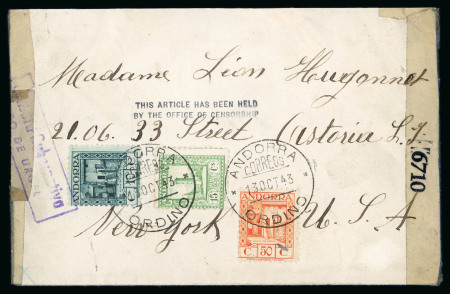 Madame Léon Hugonnet
THIS ARTICLE HAS BEEN HELD
BY THE OFFICE OF CENSORSHIP
21.06. 33 Street Astoria L. I.
6710
ANDORRA
CORREOS
13 OCT 43
ORDINO
ANDORRA
CORREOS
13 OCT 43
ORDINO
ANDORRA
C 15 C
ANDORRA
C 50 C
New-York U. S. A